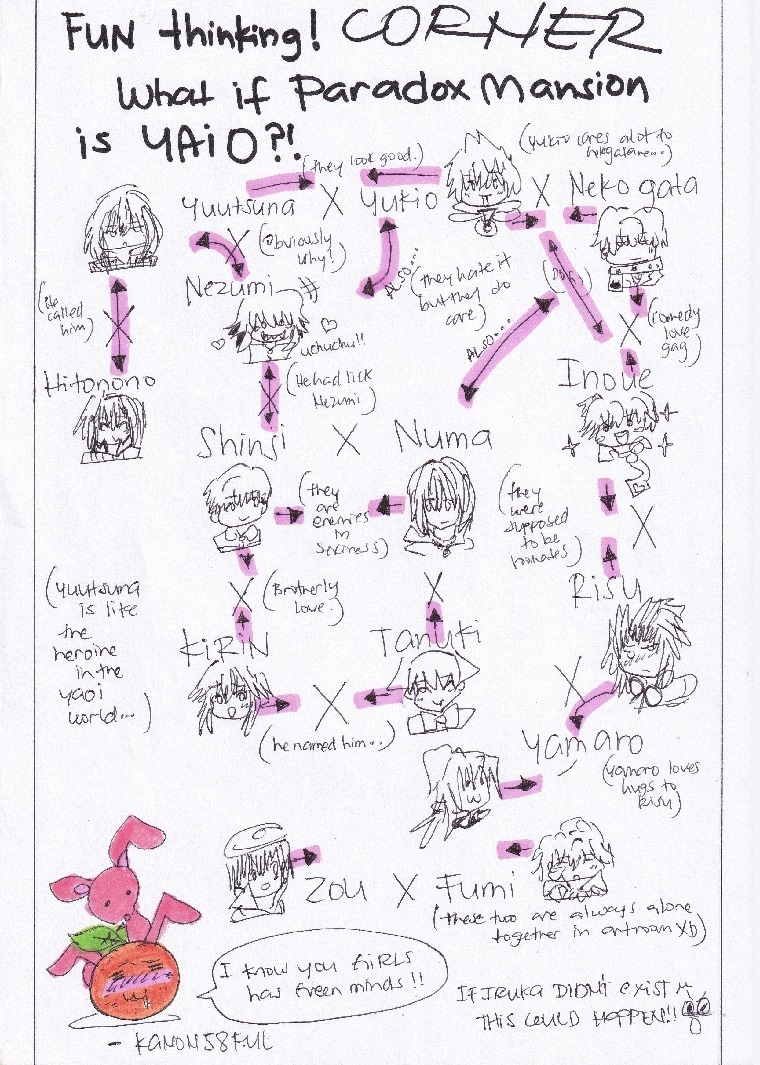 FUN thinking! CORNER
What if Paradox Mansion
is YAIO?!
(they look good.)
(Yukio cares alot to
Yuutsuna X Yukio X Neko gata
X (Obviously
why!)
Nezumi
ALSO...
(they hate it
but they do
care)
ALSO...
(He
called
him)
X
X
(Comedy
love
gag)
uchuchu!!
Hitonono
X
(He had lick
Nezumi)
Inoue
Shinji X Numa
(they
are
enemies
in
sexiness)
(they
were
supposed
to be
)
X
Risu
X
(Brotherly
love.)
X
KiRiN
Tanuki
X
X
(he named him...)
(Yuutsuna
is like
the
heroine
in the
yaoi
world...)
Yamaro
(Yamaro loves
hugs to
Risu)
Zou X Fumi
(these two are always alone
together in XD)
I know you GiRLS
has Green minds!!
If IRUKA DIDN't exist
THIS COULD HAPPEN!!
- KANON58FUL